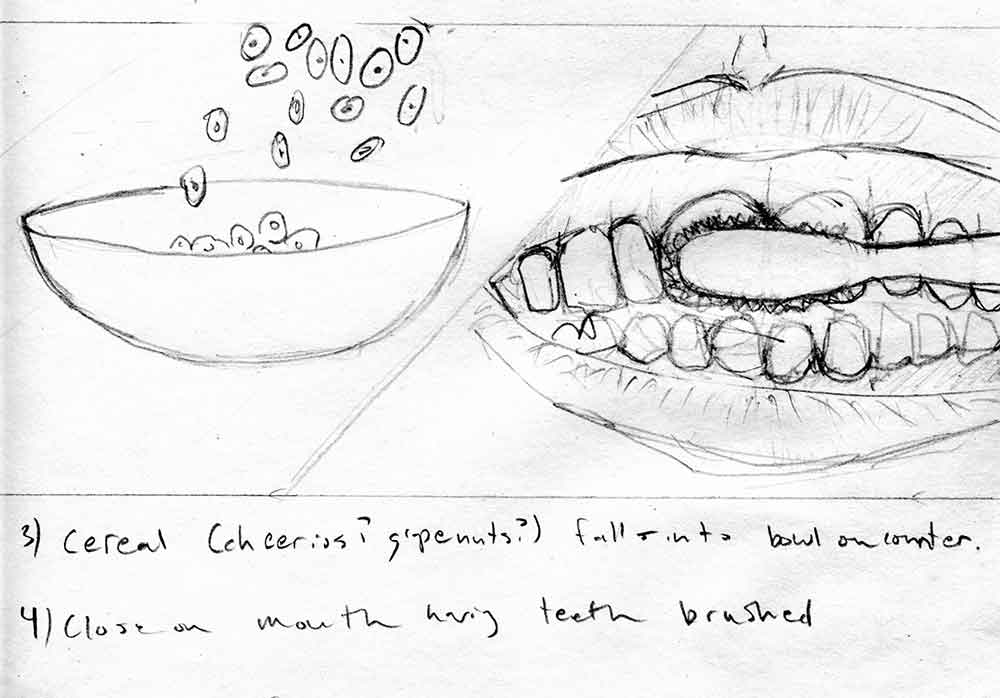 3) Cereal (cheerios? grapenuts?) falls into bowl on counter.
4) Close on mouth having teeth brushed